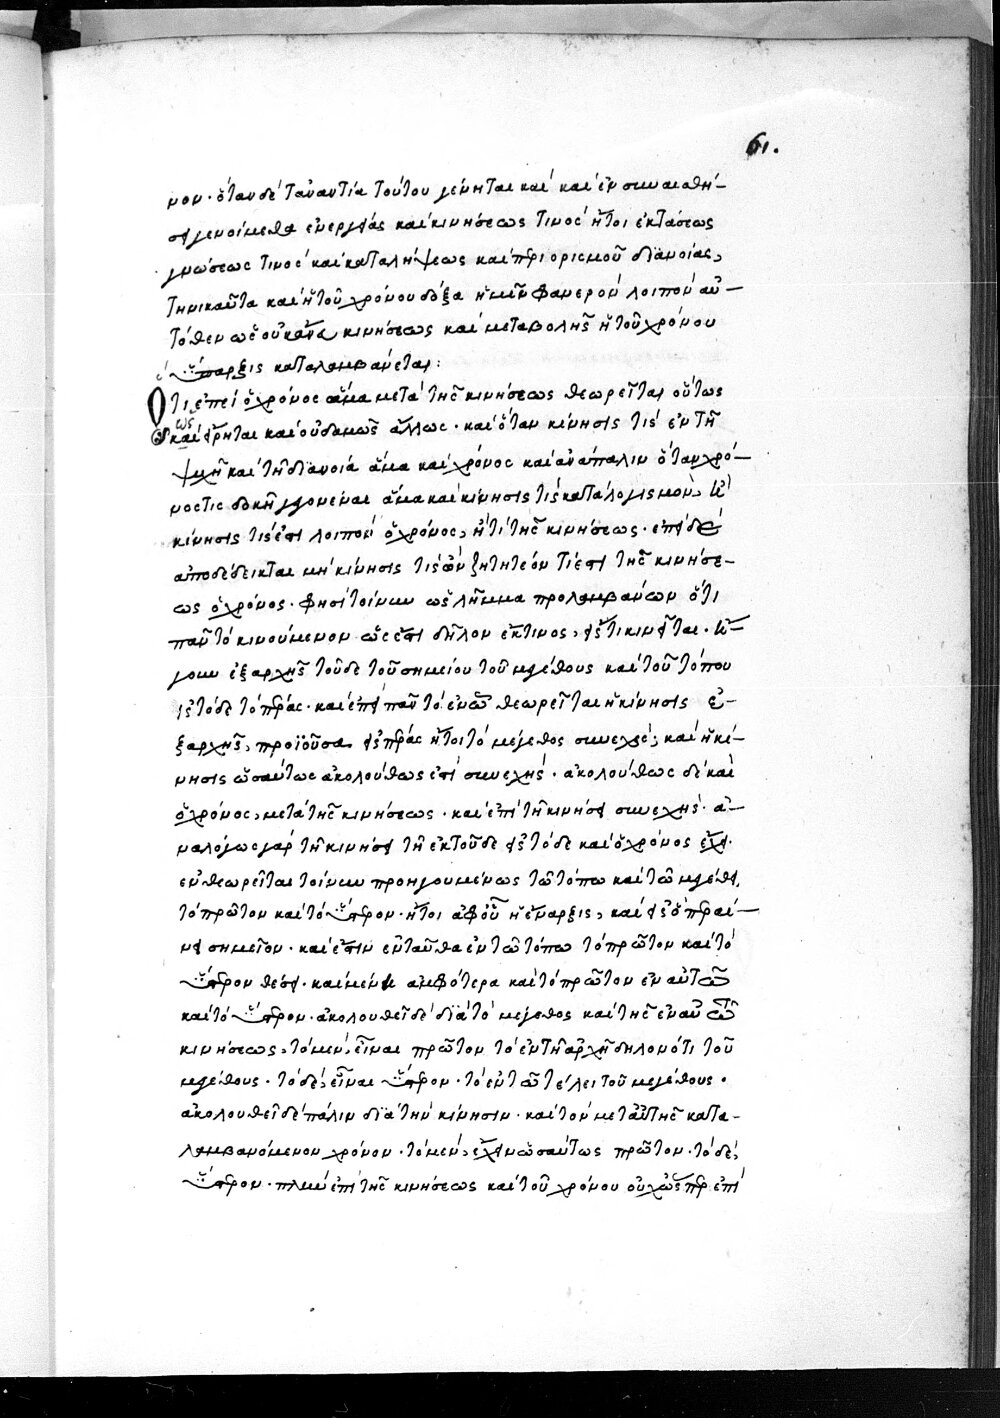 61.
μον · ὅταν δὲ τἀναντία τούτου γένηται καὶ καὶ ἐν συναισθή-
σει γενοίμεθα ἐνεργείας καὶ κινήσεως τινὸς ἤτοι ἐκτάσεως
γνώσεως τινὸς καὶ καταλήψεως καὶ περιορισμοῦ διανοίας,
τηνικαῦτα καὶ ἡ τοῦ χρόνου δόξα ἡμῖν φανερὸν λοιπὸν αὐ-
τόθεν ὡς οὐκ ἄνευ κινήσεως καὶ μεταβολῆς ἡ τοῦ χρόνου
ὕπαρξις καταλαμβάνεται:
Ὅτι ἐπεὶ ὁ χρόνος ἅμα μετὰ τῆς κινήσεως θεωρεῖται οὕτως
ὡς καὶ εἴρηται καὶ οὐδαμῶς ἄλλως · καὶ ὅταν κίνησις τίς ἐν τῇ
ψυχῇ καὶ τῇ διανοίᾳ ἅμα καὶ χρόνος καὶ ἀνάπαλιν ὅταν χρό-
νος τις δοκῇ γεγονέναι ἅμα καὶ κίνησις τίς κατὰ λογισμὸν, ἢ
κίνησις τίς ἐστι λοιπὸν ὁ χρόνος, ἤ τι τῆς κινήσεως · ἐπεὶ δὲ
ἀποδέδεικται μὴ κίνησις τίς ὢν ζητητέον τί ἐστι τῆς κινήσε-
ως ὁ χρόνος · φησὶ τοίνυν ὡς λῆμμα προλαμβάνων ὅτι
πᾶν τὸ κινούμενον ὥς ἐστι δῆλον ἔκ τινος, εἴς τι κινεῖται · ἤ-
γουν ἐξ ἀρχῆς τοῦδε τοῦ σημείου τοῦ μεγέθους καὶ τοῦ τόπου
εἰς τόδε τὸ πέρας · καὶ ἐπεὶ πᾶν τὸ ἐν ᾧ θεωρεῖται ἡ κίνησις ἐ-
ξ ἀρχῆς, προϊοῦσα εἰς πέρας ἤτοι τὸ μέγεθος συνεχὲς, καὶ ἡ κί-
νησις ὡσαύτως ἀκολούθως ἐστὶ συνεχής · ἀκολούθως δὲ καὶ
ὁ χρόνος, μετὰ τῆς κινήσεως · καὶ ἐπὶ τῇ κινήσει συνεχής · ἀ-
ναλόγως γὰρ τῇ κινήσει τῇ ἐκ τοῦδε εἰς τόδε καὶ ὁ χρόνος ἔχει ·
ἐνθεωρεῖται τοίνυν προηγουμένως τῷ τόπῳ καὶ τῷ μεγέθει
τὸ πρῶτον καὶ τὸ ὕστερον · ἤτοι ἀφ' οὗ ἡ ἔναρξις, καὶ εἰς ὃ περαί-
νει σημεῖον · καὶ ἔστιν ἐνταῦθα ἐν τῷ τόπῳ τὸ πρῶτον καὶ τὸ
ὕστερον θέσει · καὶ μένει ἀμφότερα καὶ τὸ πρῶτον ἐν αὐτῷ
καὶ τὸ ὕστερον · ἀκολουθεῖ δὲ διὰ τὸ μέγεθος καὶ τῆς ἐν αὐτῷ
κινήσεως, τὸ μὲν, εἶναι πρῶτον τὸ ἐν τῇ ἀρχῇ δηλονότι τοῦ
μεγέθους · τὸ δὲ, εἶναι ὕστερον · τὸ ἐν τῷ τέλει τοῦ μεγέθους ·
ἀκολουθεῖ δὲ πάλιν διὰ τὴν κίνησιν · καὶ τὸν μετ' αὐτῆς κατα-
λαμβανόμενον χρόνον · τὸ μὲν, ἔχειν ὡσαύτως πρῶτον · τὸ δὲ,
ὕστερον · πλὴν ἐπὶ τῆς κινήσεως καὶ τοῦ χρόνου οὐχ ὥσπερ ἐπὶ